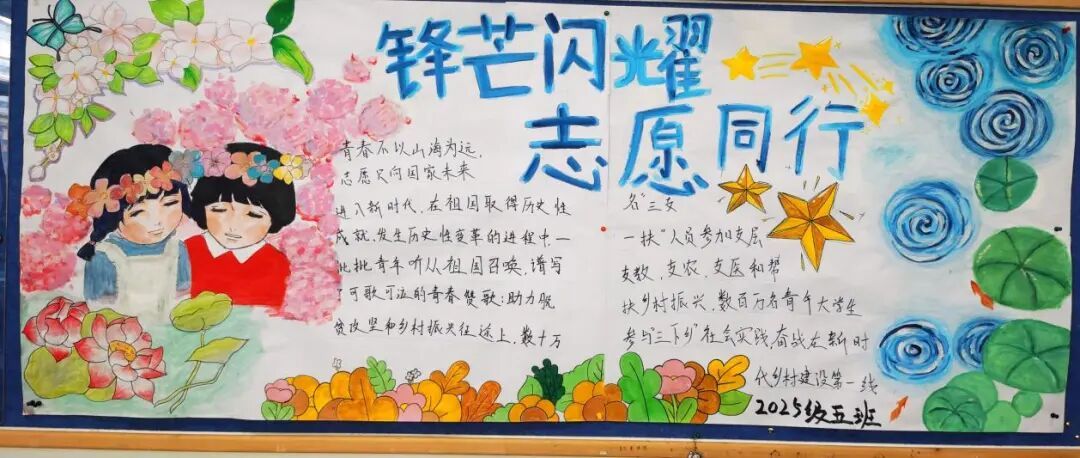 锋芒闪耀
志愿同行
青春不以山海为远,
志愿只向国家未来
进入新时代,在祖国取得历史性
成就、发生历史性变革的进程中,一
批批青年听从祖国召唤,谱写
了可歌可泣的青春赞歌:助力脱
贫攻坚和乡村振兴征途上,数十万
名"三支
一扶"人员参加支层
支教、支农、支医和帮
扶乡村振兴,数百万名青年大学生
参与"三下乡"社会实践,奋战在新时
代乡村建设第一线
2025级五班